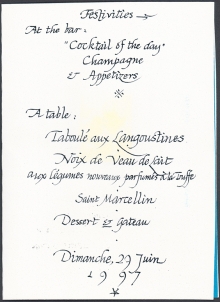 Festivities
At the bar:
"Cocktail of the day"
Champagne
& Appetizers
A table:
Taboulé aux Langoustines
Noix de Veau de lait
aux légumes nouveaux parfumés à la Truffe
Saint Marcellin
Dessert & Gateau
Dimanche, 29 Juin
1997